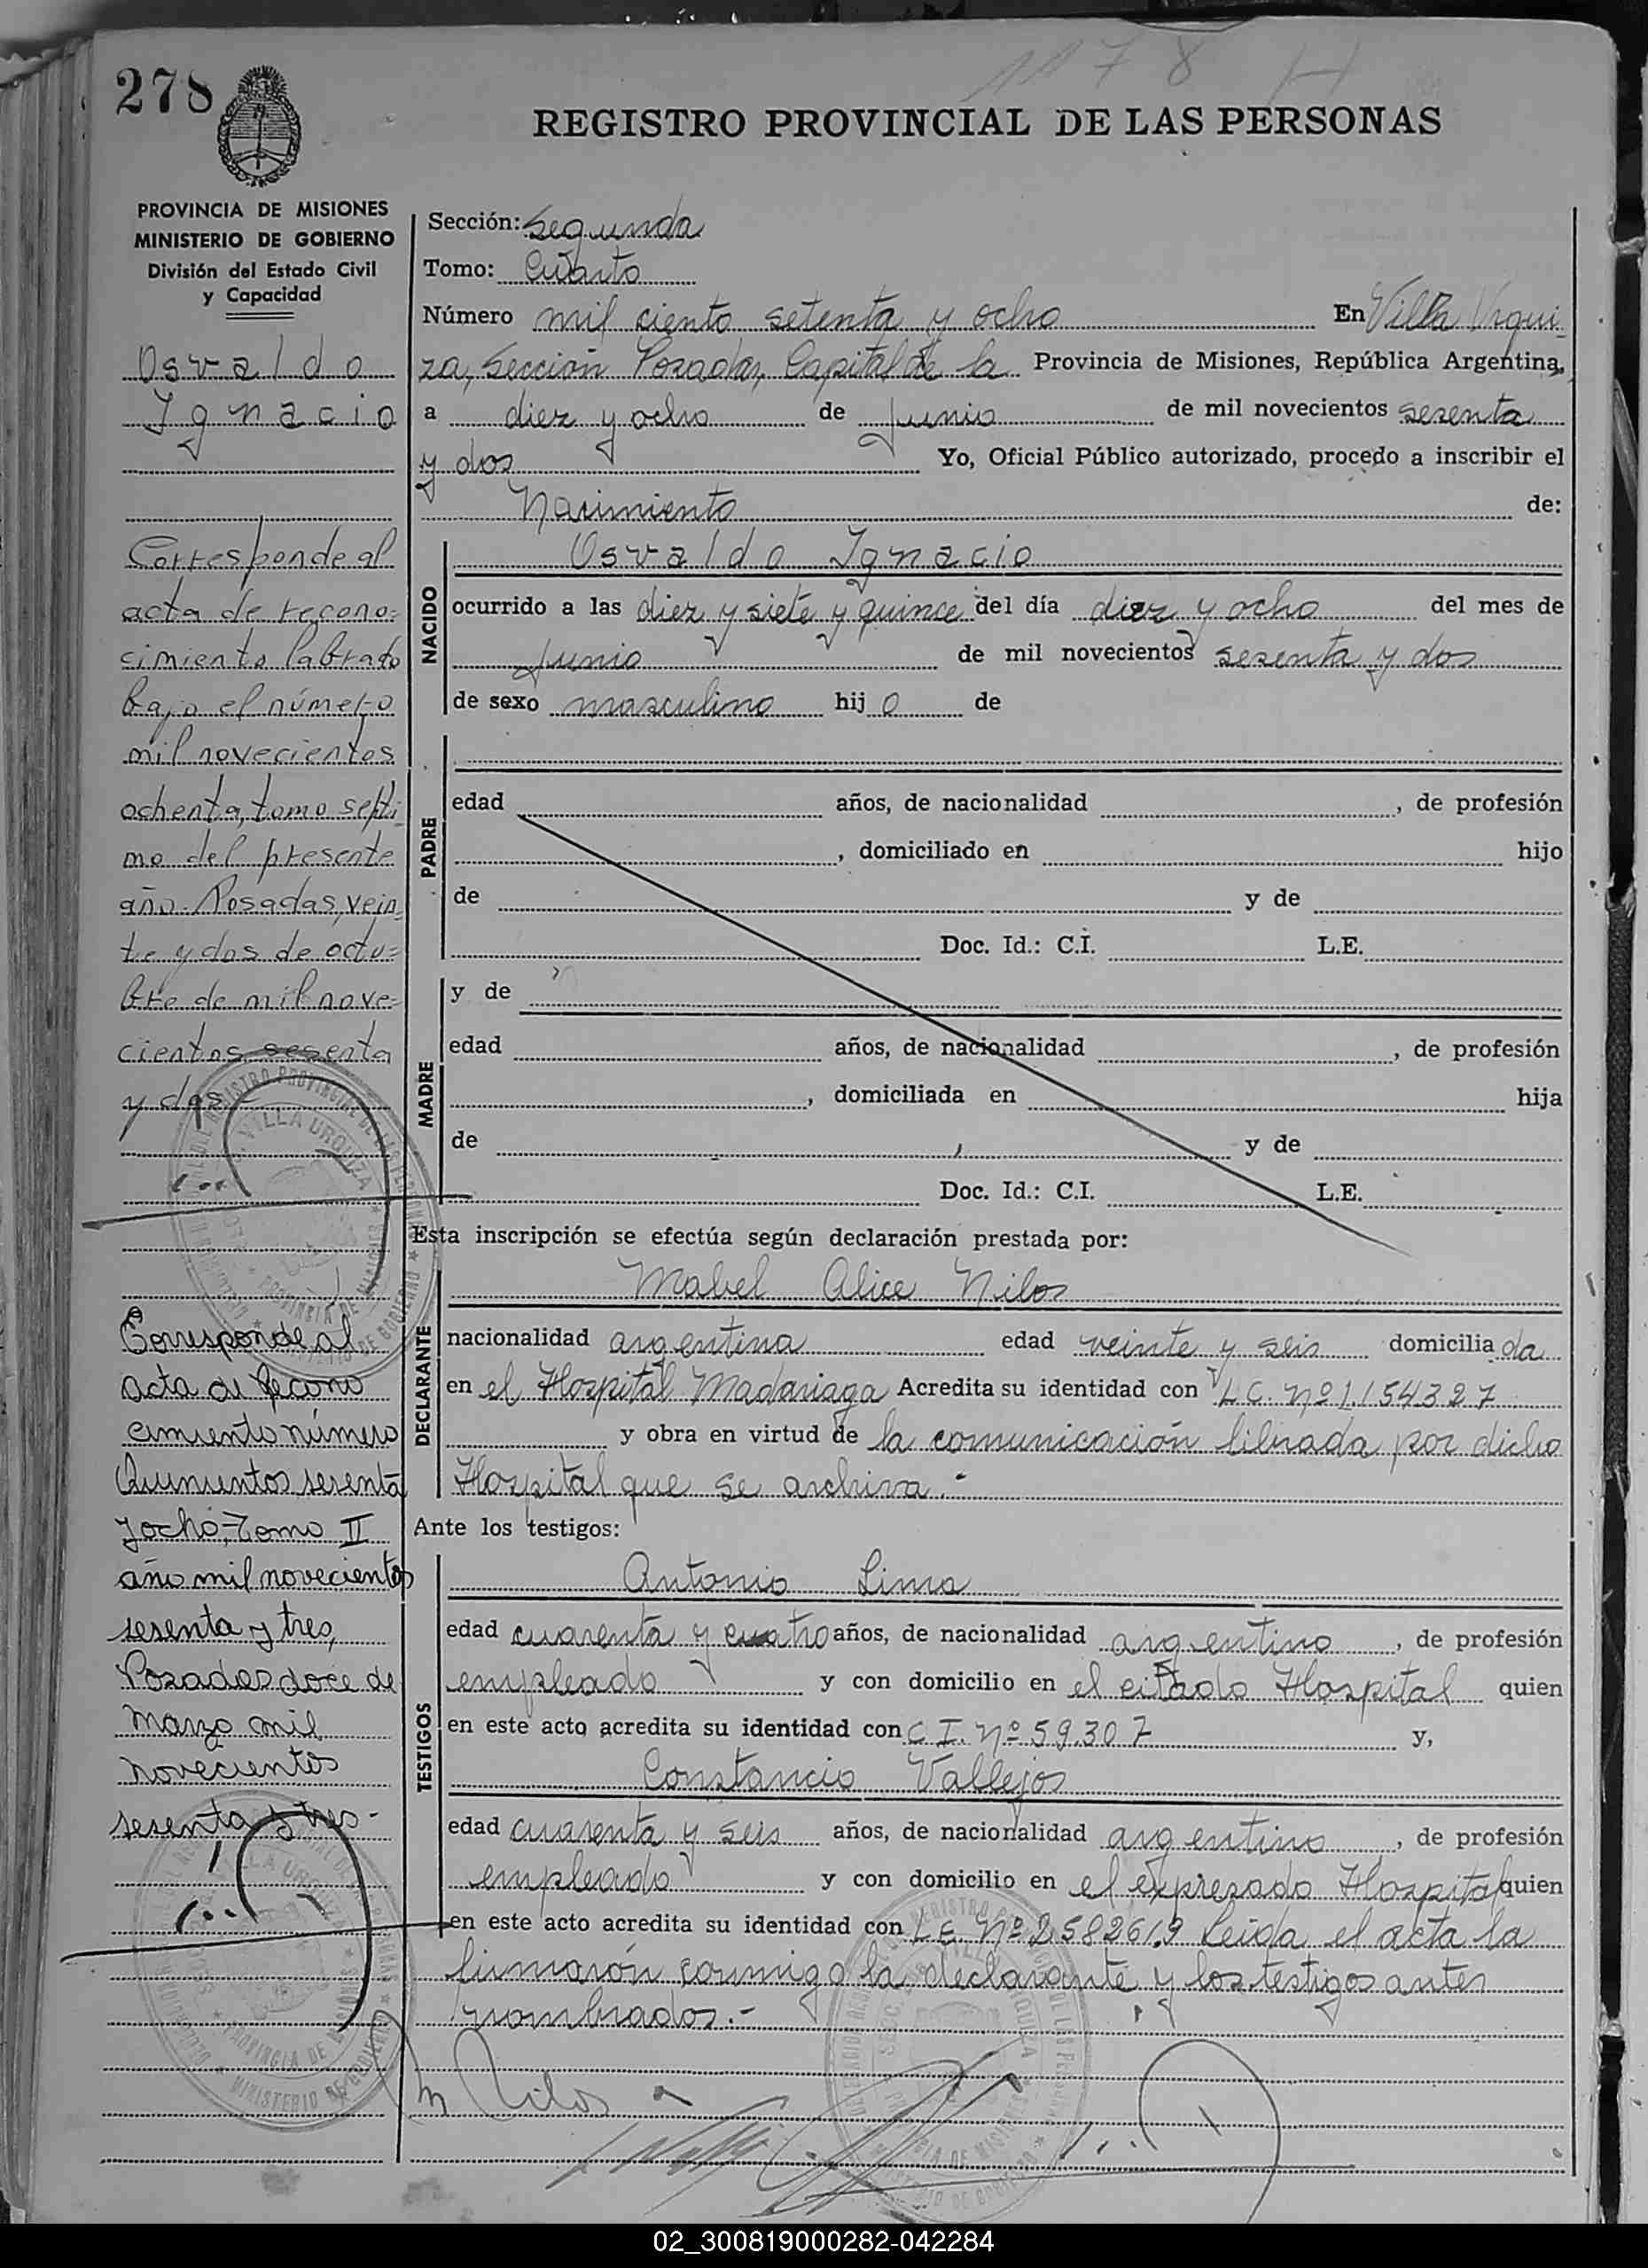 1178 H
278
REGISTRO PROVINCIAL DE LAS PERSONAS
PROVINCIA DE MISIONES
MINISTERIO DE GOBIERNO
División del Estado Civil
y Capacidad
Osvaldo
Ignacio
Corresponde al
acta de recono=
cimiento labrado
bajo el número
mil novecientos
ochenta, tomo septi
mo del presente
año. Posadas, vein
te y dos de octu=
bre de mil nove=
cientos sesenta
y dos
Corresponde al
acta de Recono
cimiento número
Quinientos sesenta
y ocho, Tomo II
año mil novecientos
sesenta y tres,
Posadas doce de
Marzo mil
novecientos
sesenta y tres -
Sección: Segunda
Tomo: Cuarto
Número mil ciento setenta y ocho En Villa Urqui
za, Sección Posadas, Capital de la Provincia de Misiones, República Argentina,
a diez y ocho de Junio de mil novecientos sesenta
y dos Yo, Oficial Público autorizado, procedo a inscribir el
Nacimiento de:
NACIDO
Osvaldo Ignacio
ocurrido a las diez y siete y quince del día diez y ocho del mes de
Junio de mil novecientos sesenta y dos
de sexo masculino hij o de
PADRE
edad años, de nacionalidad , de profesión
, domiciliado en hijo
de y de
Doc. Id.: C.I. L.E.
MADRE
y de
edad años, de nacionalidad , de profesión
, domiciliada en hija
de y de
Doc. Id.: C.I. L.E.
Esta inscripción se efectúa según declaración prestada por:
DECLARANTE
Mabel Alice Nilos
nacionalidad argentina edad veinte y seis domicilia da
en el Hospital Madariaga Acredita su identidad con L.C. Nº 1.154.327
y obra en virtud de la comunicación librada por dicho
Hospital que se archiva.-
Ante los testigos:
TESTIGOS
Antonio Lima
edad cuarenta y cuatro años, de nacionalidad argentino , de profesión
empleado y con domicilio en el citado Hospital quien
en este acto acredita su identidad con C.I. Nº 59.307 y,
Constancio Vallejos
edad cuarenta y seis años, de nacionalidad argentino , de profesión
empleado y con domicilio en el expresado Hospital quien
en este acto acredita su identidad con L.E. Nº 2.582619 Leida el acta la
firmarón conmigo la declarante y los testigos antes
nombrados.-
M Nilos
02_300819000282-042284